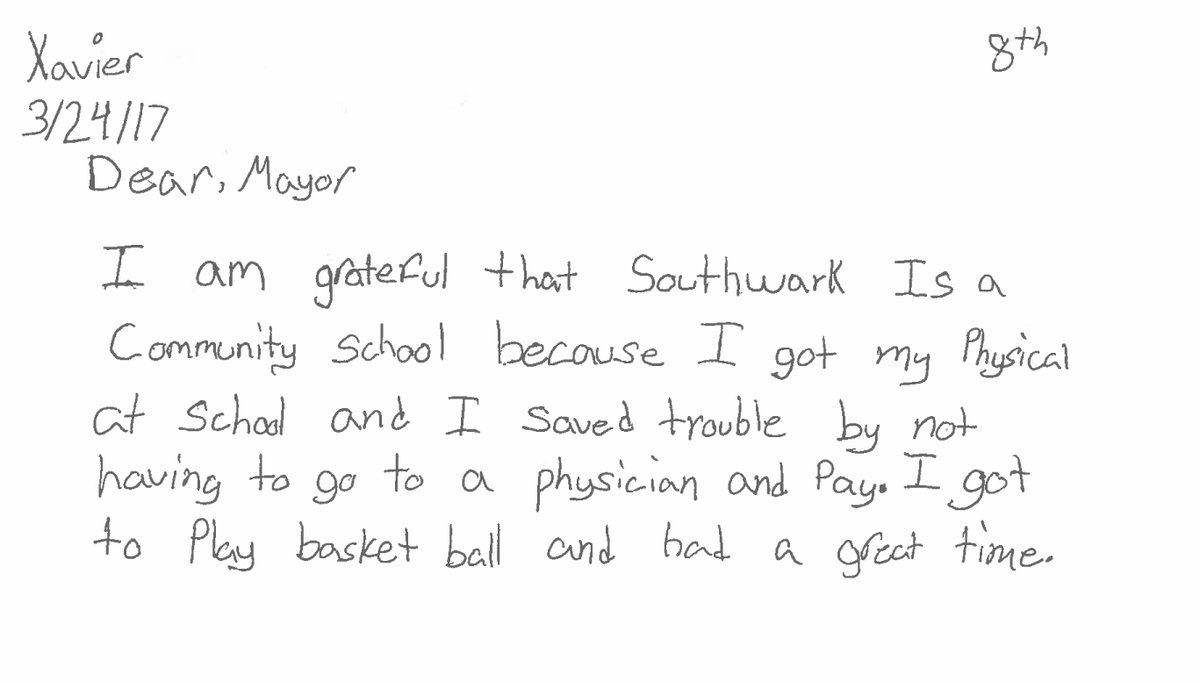 Xavier 8th
3/24/17
Dear, Mayor
I am grateful that Southwark Is a
Community school because I got my Physical
at School and I saved trouble by not
having to go to a physician and Pay. I got
to Play basket ball and had a great time.